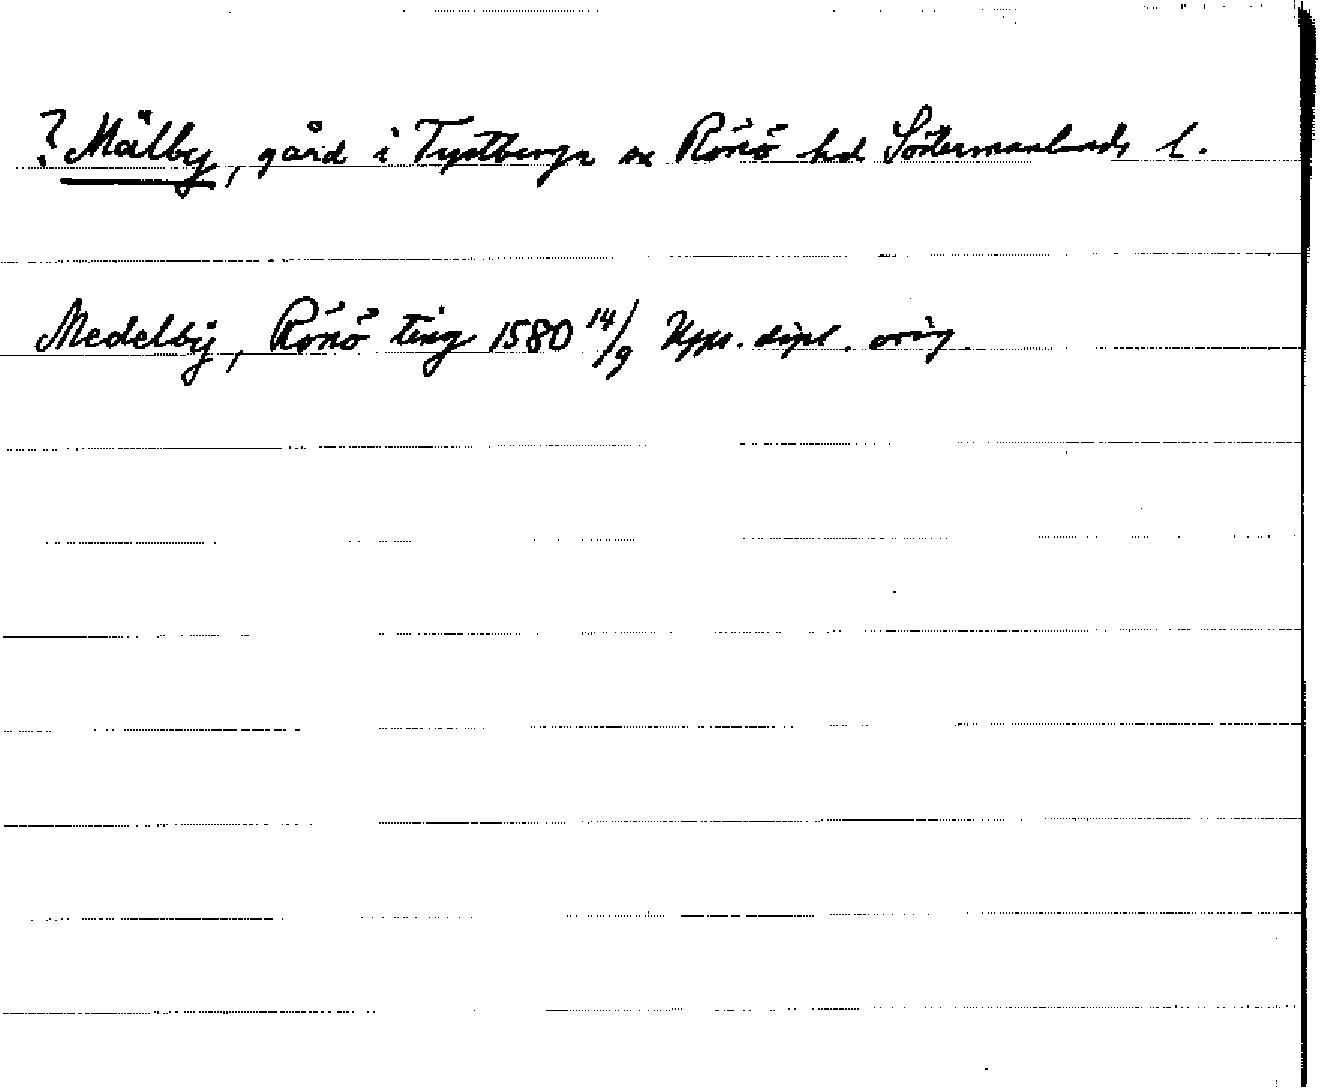 ? Mälby, gård i Tystberga sn Rönö hd Södermanlands l.
Medelbÿ, Rönö ting 1580 14/9 Upps. dipl. orig.